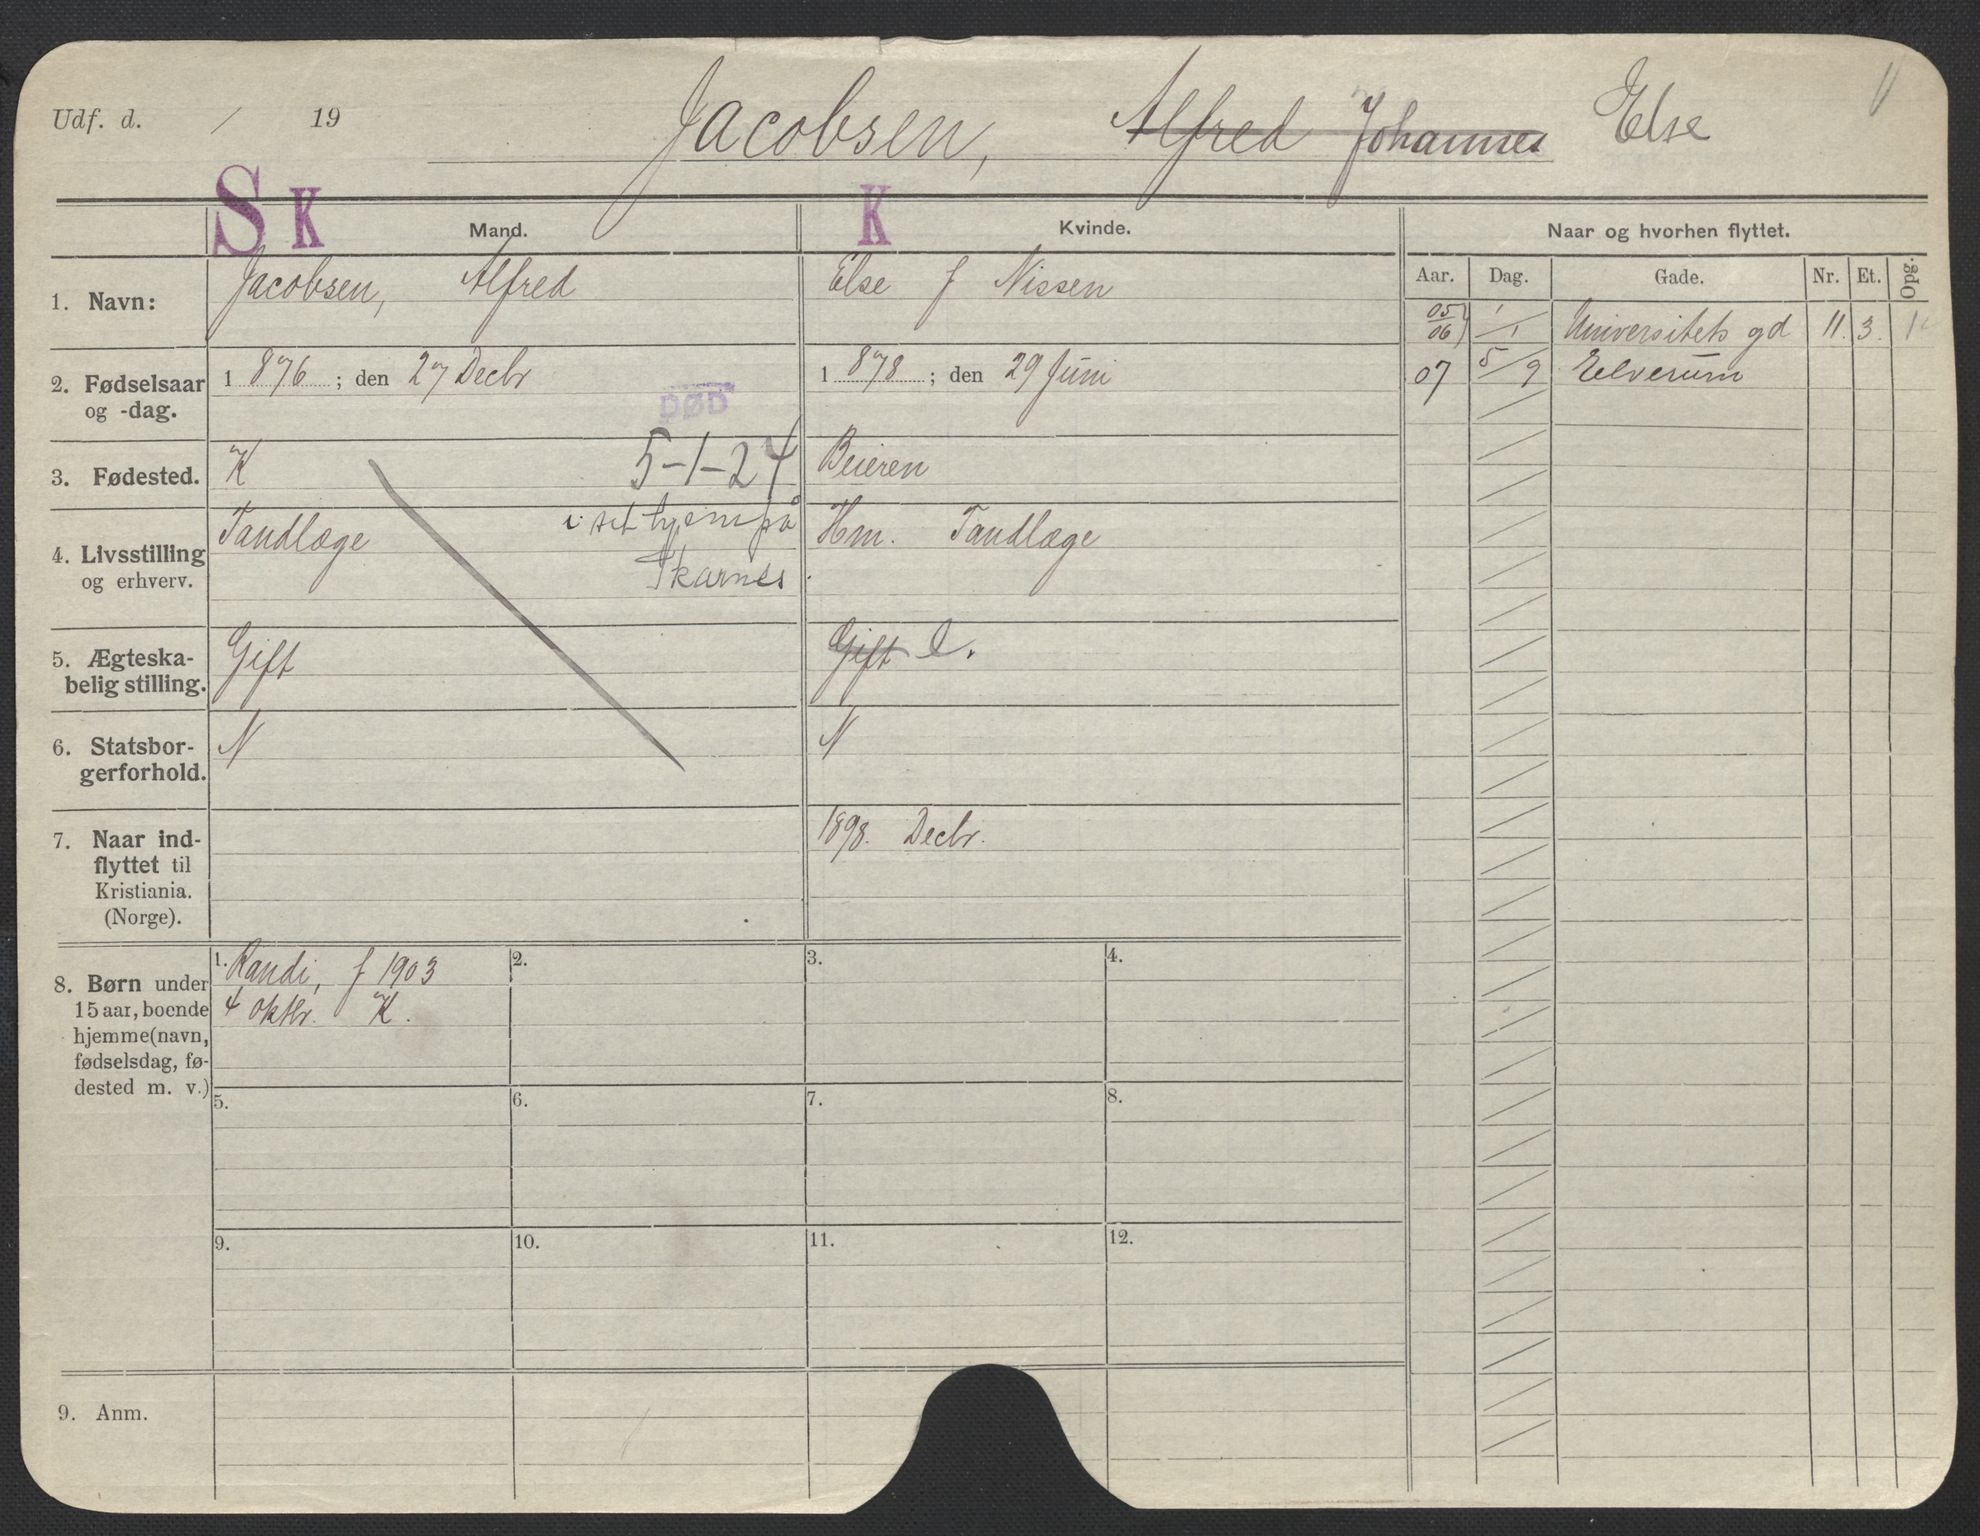 Udf. d. / 19
Jacobsen, Alfred Johannes Else
S K K
Mand. Kvinde. Naar og hvorhen flyttet.
Aar. Dag. Gade. Nr. Et. Opg.
1. Navn: Jacobsen, Alfred Else f Nissen
05/06 1/1 Universitets gd 11. 3.
07 5/9 Elverum
2. Fødselsaar
og -dag.
1 876 ; den 27 Decbr 1 878 ; den 29 Juni
DØD
5-1-24
3. Fødested. K Beieren
i sit hjem på
Skarnes
4. Livsstilling
og erhverv.
Tandlæge Hm. Tandlæge
5. Ægteska-
belig stilling.
Gift Gift E.
6. Statsbor-
gerforhold.
N N
7. Naar ind-
flyttet til
Kristiania.
(Norge).
1898. Decbr.
8. Børn under
15 aar, boende
hjemme (navn,
fødselsdag, fø-
dested m. v.)
1. Randi, f 1903
4 oktbr. K.
2. 3. 4.
5. 6. 7. 8.
9. 10. 11. 12.
9. Anm.